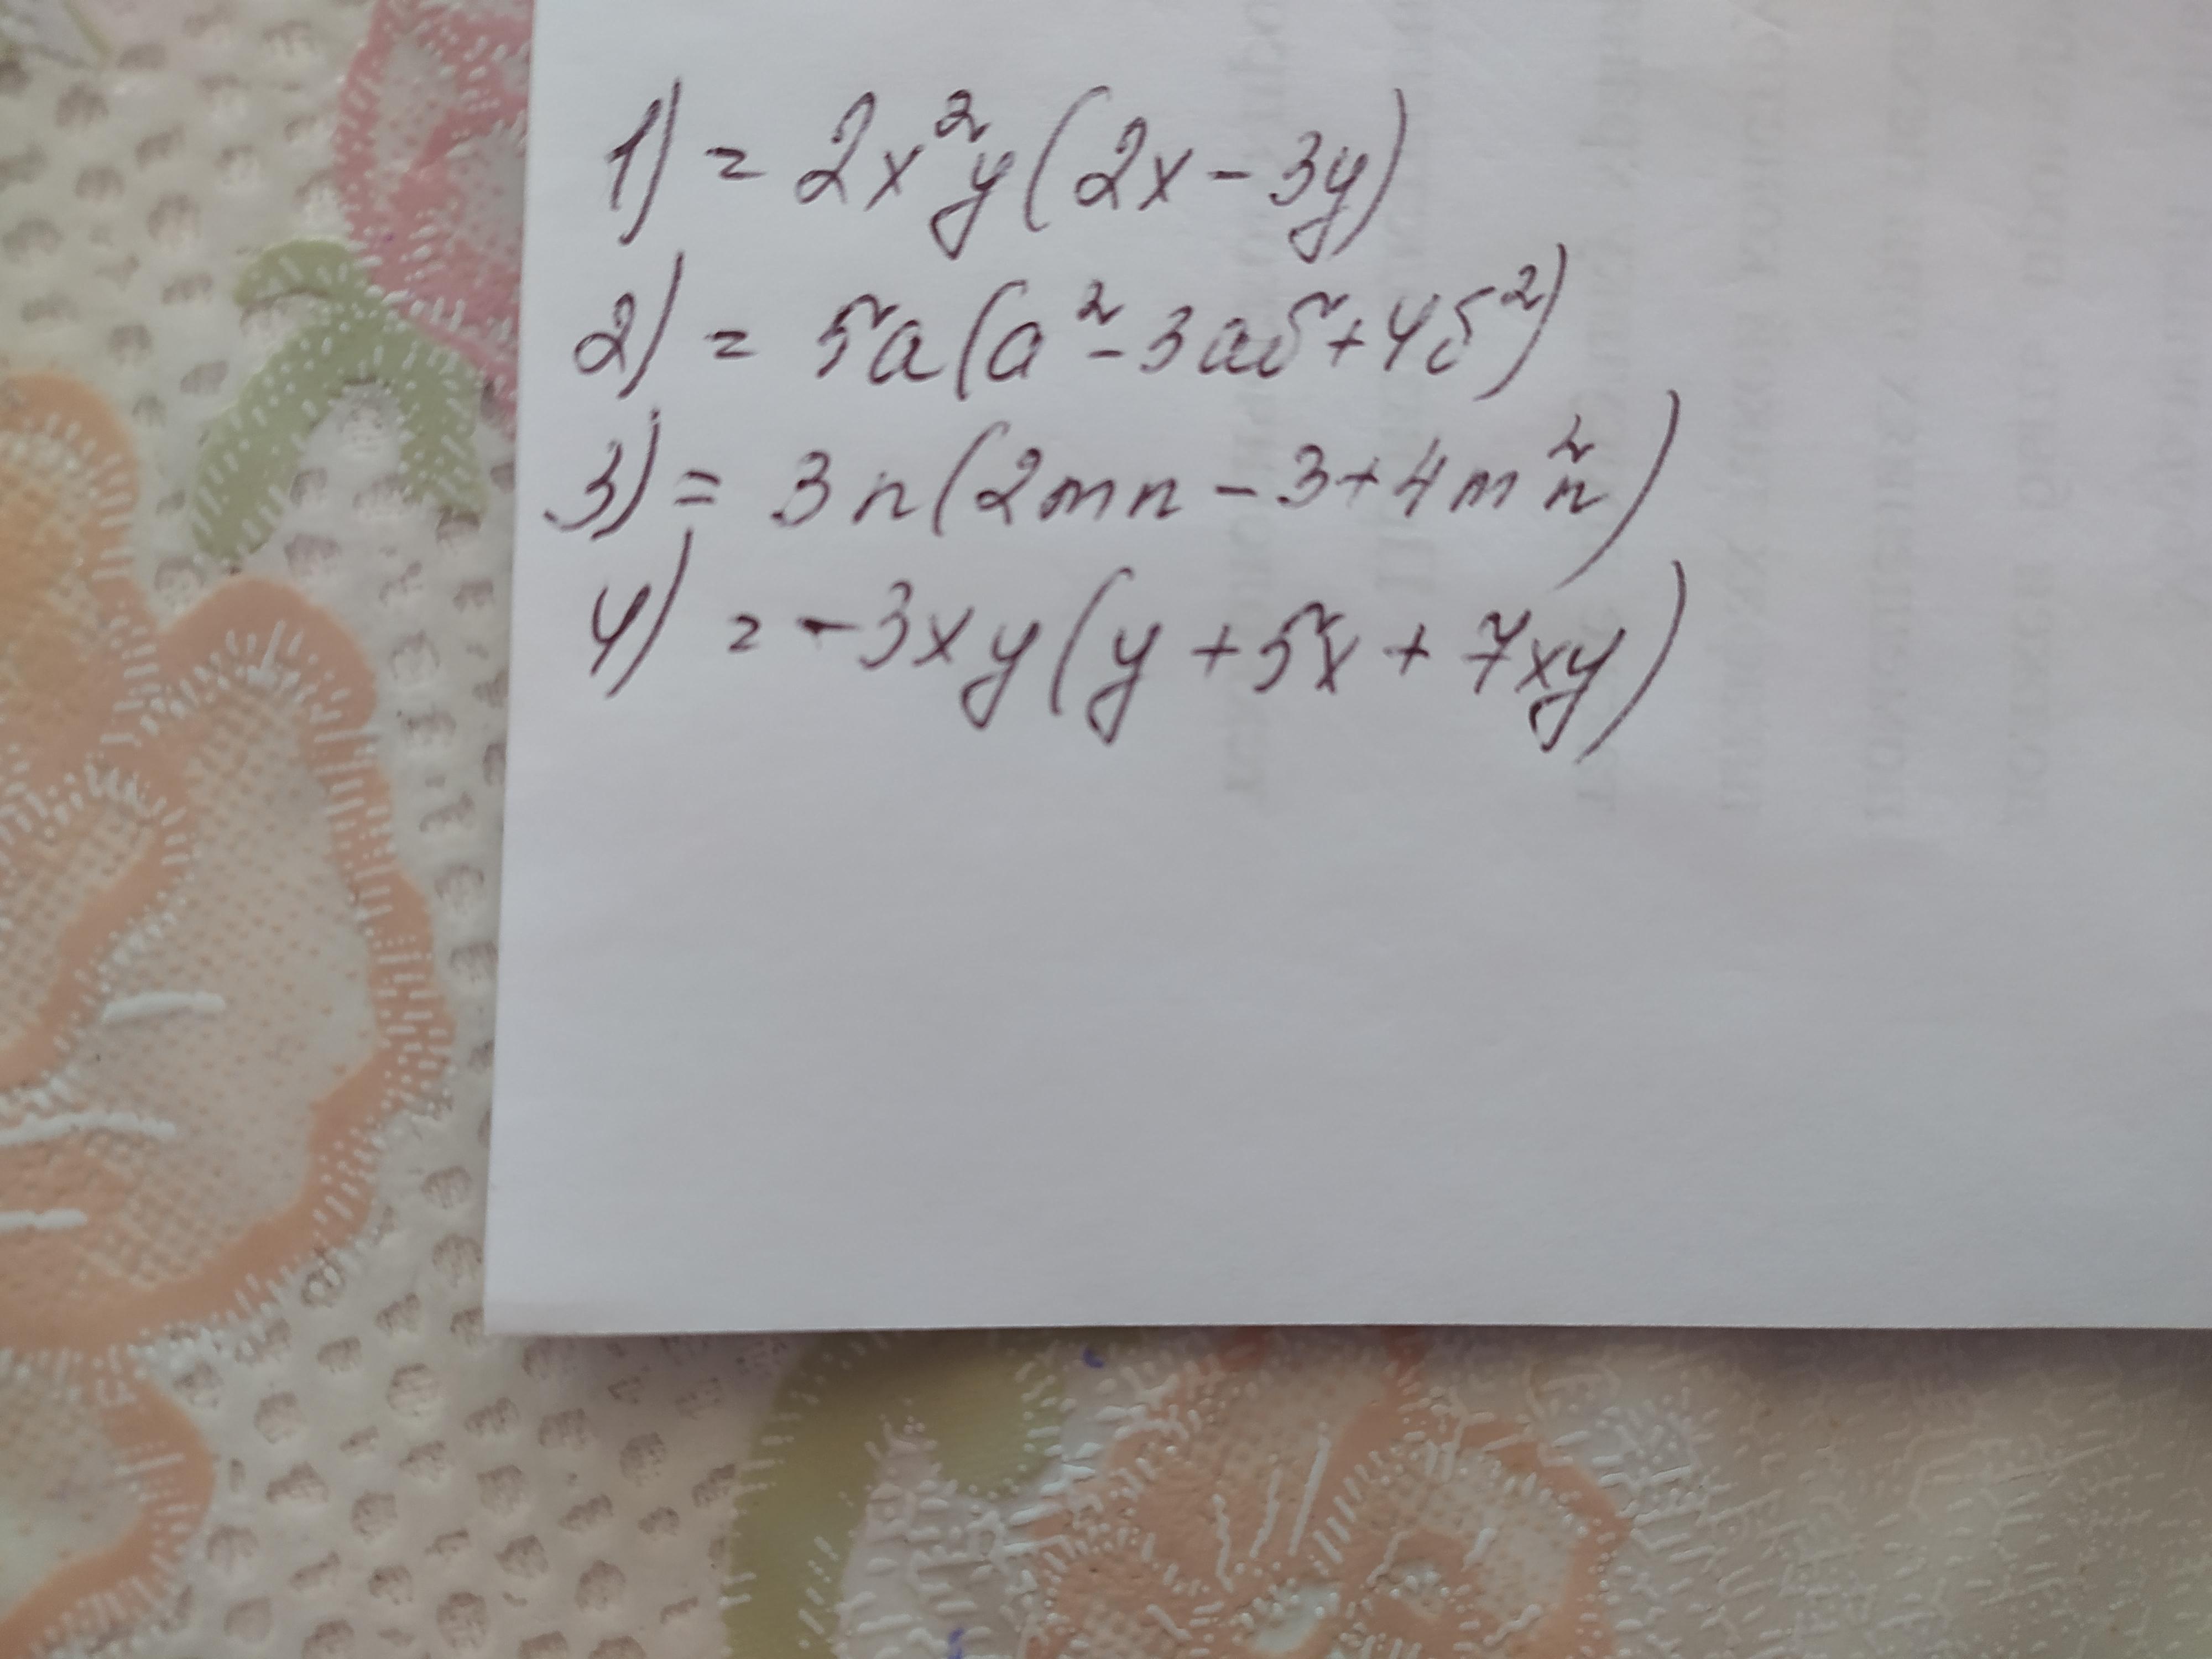 1) = 2x²y(2x - 3y)
2) = 5a(a² - 3aб + 4б²)
3) = 3n(2mn - 3 + 4m²n)
4) = -3xy(y + 5x + 7xy)